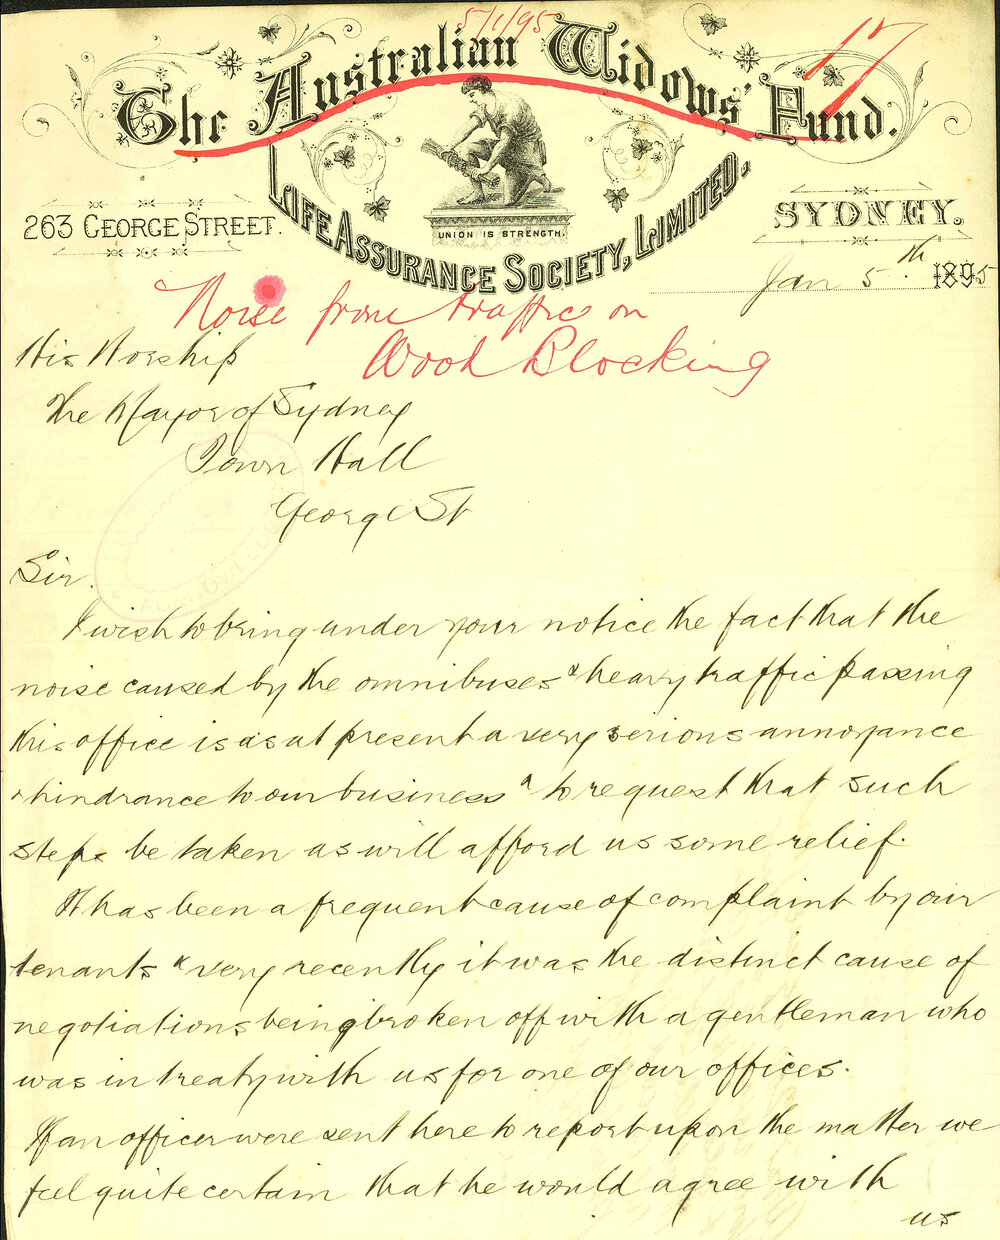 5/1/95
17
The Australian Widows' Fund.
Life Assurance Society, Limited.
Union is Strength.
263 George Street.
Sydney.
Jan 5th 1895
Noise from traffic on
Wood Blocking
His Worship
The Mayor of Sydney
Town Hall
George St
Sir.
I wish to bring under your notice the fact that the
noise caused by the omnibuses & heavy traffic passing
this office is as at present a very serious annoyance
& hindrance to our business & to request that such
steps be taken as will afford us some relief.
It has been a frequent cause of complaint by our
tenants & very recently it was the distinct cause of
negotiations being broken off with a gentleman who
was in treaty with us for one of our offices.
If an officer were sent here to report upon the matter we
feel quite certain that he would agree with
us